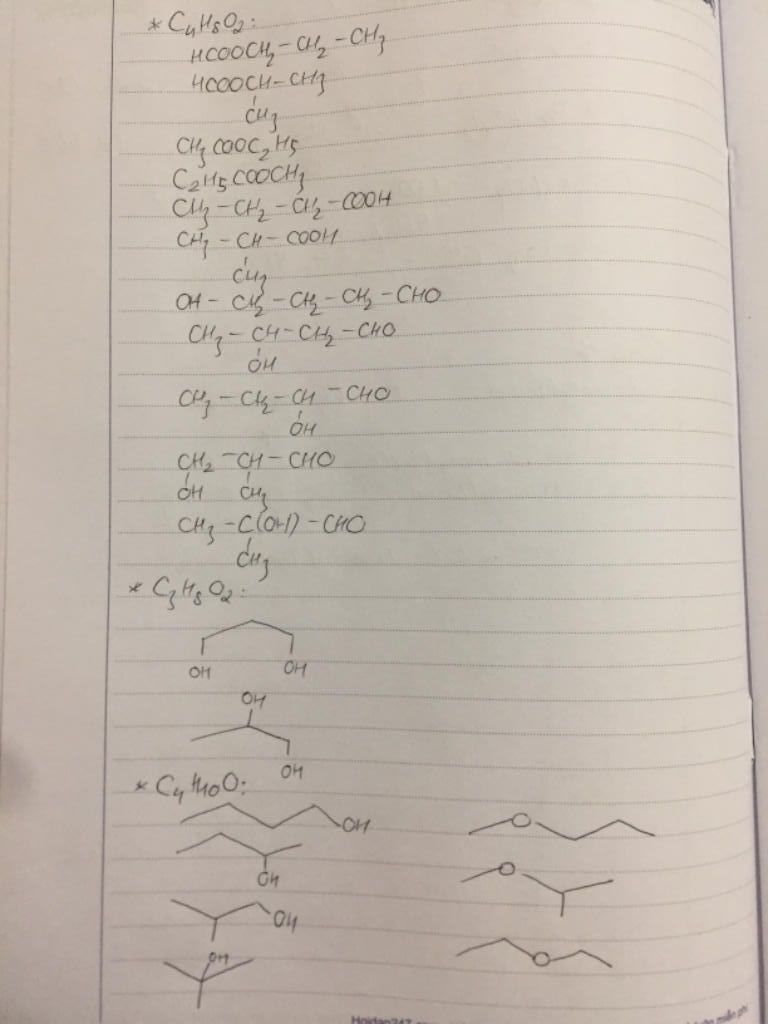 * C₄H₈O₂:
HCOOCH₂-CH₂-CH₃
HCOOCH-CH₃
CH₃
CH₃COOC₂H₅
C₂H₅COOCH₃
CH₃-CH₂-CH₂-COOH
CH₃-CH-COOH
CH₃
OH-CH₂-CH₂-CH₂-CHO
CH₃-CH-CH₂-CHO
OH
CH₃-CH₂-CH-CHO
OH
CH₂-CH-CHO
OH CH₃
CH₃-C(OH)-CHO
CH₃
* C₃H₈O₂:
OH OH
OH
OH
* C₄H₁₀O:
OH O
OH O
OH
OH O
Hoidap247
miễn phí